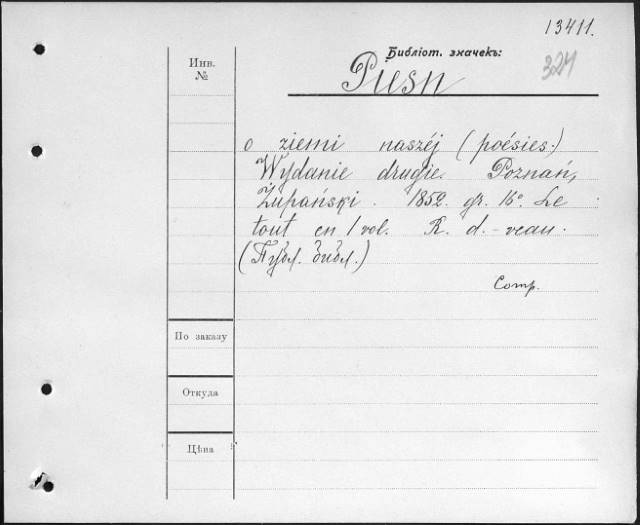 13411.
Библіот. значекъ:
Инв.
№
324
Piesn
o ziemi naszéj (poésies.)
Wydanie drugie. Poznań,
Żupański. 1852. gr. 16º. Le
tout en 1 vol. R. d.-veau.
(Публ. библ.)
Comp.
По заказу
Откуда
Цѣна